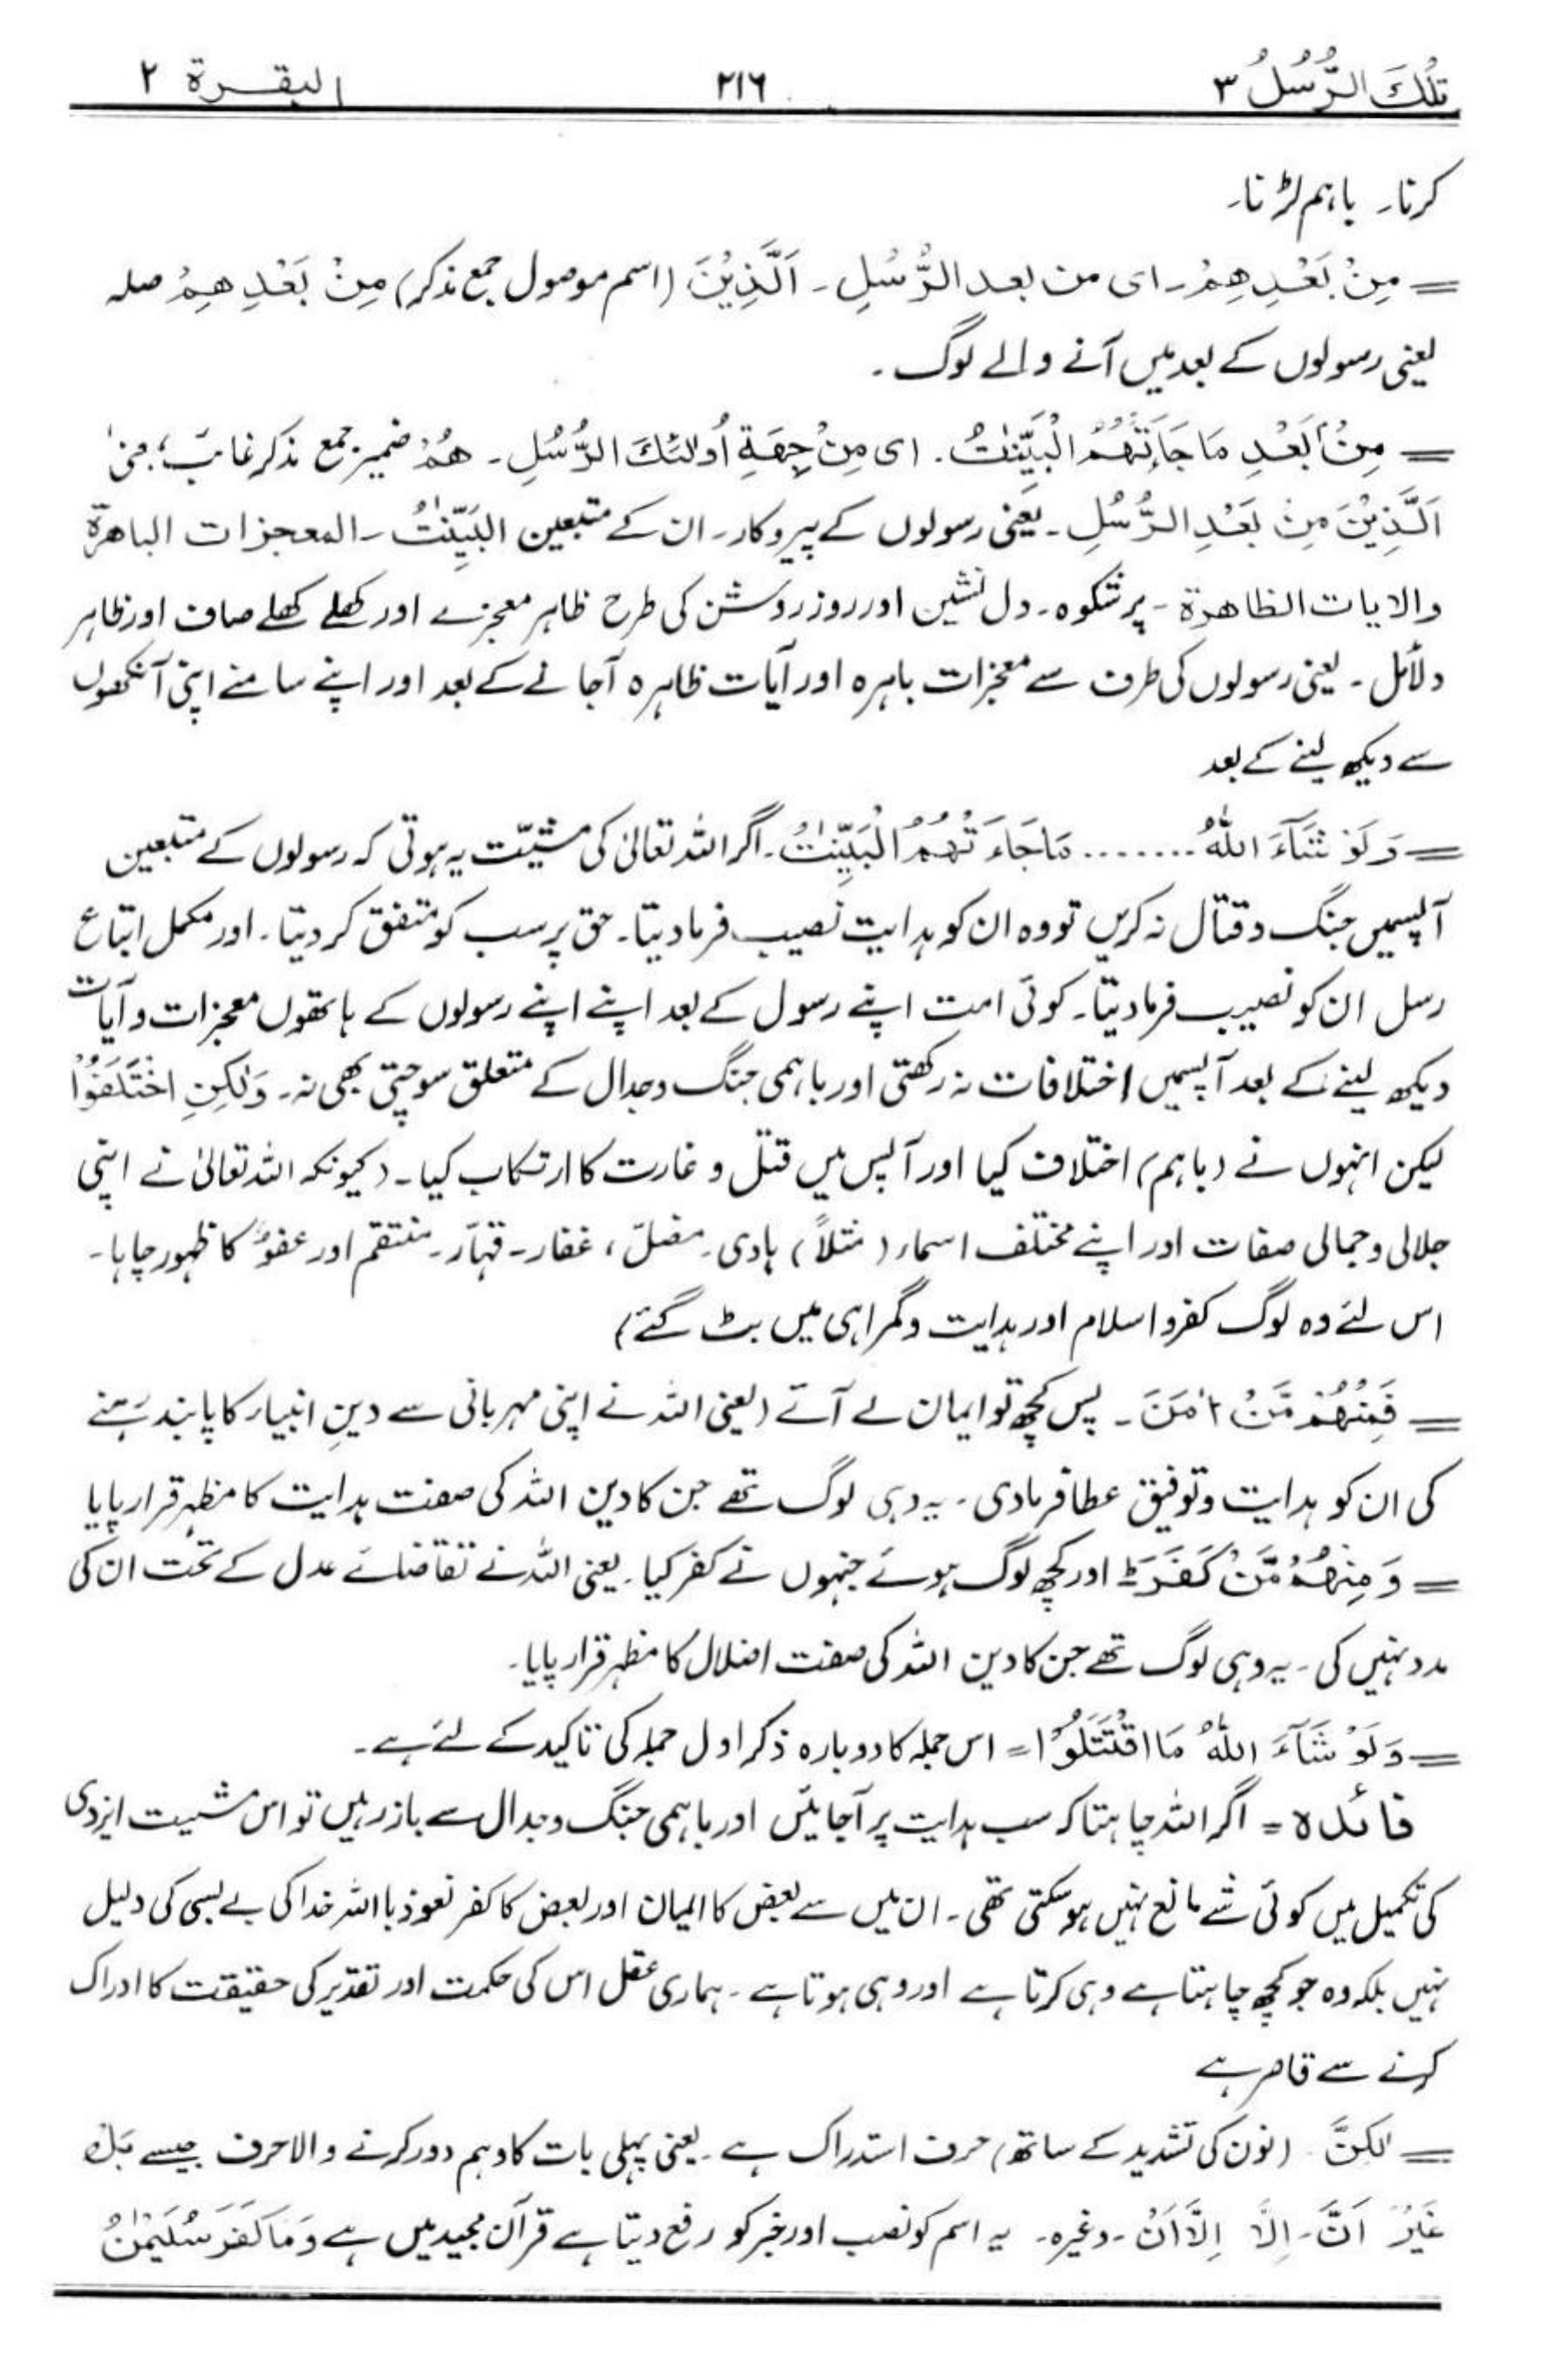 تِلْكَ الرُّسُلُ ۳ ۲۱۶ البقرة ۲
کرنا۔ باہم لڑنا۔
= مِنْ بَعْدِهِمْ۔ ای من بعد الرُّسُلِ۔ اَلَّذِيْنَ (اسم موصول جمع مذکر) مِنْ بَعْدِهِمْ صلہ
یعنی رسولوں کے بعد میں آنے والے لوگ۔
= مِنْۢ بَعْدِ مَا جَآءَتْهُمُ الْبَيِّنٰتُ۔ ای مِنْ جِهَةِ أُولٰئِكَ الرُّسُلِ۔ هُمْ ضمیر جمع مذکر غائب؛
اَلَّذِيْنَ مِنْ بَعْدِ الرُّسُلِ۔ یعنی رسولوں کے پیروکار۔ ان کے متبعین البَيِّنٰتُ۔ المعجزات الباهرة
والایات الظاهرة۔ پرشکوہ۔ دل نشین اور روز روشن کی طرح ظاہر معجزے اور کھلے کھلے صاف اور ظاہر
دلائل۔ یعنی رسولوں کی طرف سے معجزات باہرہ اور آیات ظاہرہ آجانے کے بعد اور اپنے سامنے اپنی آنکھوں
سے دیکھ لینے کے بعد
= وَلَوْ شَآءَ اللّٰهُ ....... مَا جَآءَتْهُمُ الْبَيِّنٰتُ۔ اگر اللہ تعالیٰ کی مشیّت یہ ہوتی کہ رسولوں کے متبعین
آپسمیں جنگ و قتال نہ کریں تو وہ ان کو ہدایت نصیب فرمادیتا۔ حق پر سب کو متفق کردیتا۔ اور مکمل اتباع
رسل ان کو نصیب فرمادیتا۔ کوئی امت اپنے رسول کے بعد اپنے اپنے رسولوں کے ہاتھوں معجزات و آیات
دیکھ لینے کے بعد آپسمیں اختلافات نہ رکھتی اور باہمی جنگ وجدال کے متعلق سوچتی بھی نہ۔ وَلٰكِنِ اخْتَلَفُوْا
لیکن انہوں نے (باہم) اختلاف کیا اور آپس میں قتل و غارت کا ارتکاب کیا۔ (کیونکہ اللہ تعالیٰ نے اپنی
جلالی وجمالی صفات اور اپنے مختلف اسماء (مثلاً) ہادی۔ مضلّ، غفار۔ قہّار۔ منتقم اور عفوّ کا ظہور چاہا۔
اس لئے وہ لوگ کفر و اسلام اور ہدایت وگمراہی میں بٹ گئے)
= فَمِنْهُمْ مَّنْ اٰمَنَ۔ پس کچھ تو ایمان لے آئے (یعنی اللہ نے اپنی مہربانی سے دینِ انبیاء کا پابند رہنے
کی ان کو ہدایت وتوفیق عطا فرمادی۔ یہ وہی لوگ تھے جن کا دین اللہ کی صفت ہدایت کا مظہر قرار پایا
= وَمِنْهُمْ مَّنْ كَفَرَ ط اور کچھ لوگ ہوئے جنہوں نے کفر کیا۔ یعنی اللہ نے تقاضائے عدل کے تحت ان کی
مدد نہیں کی۔ یہ وہی لوگ تھے جن کا دین اللہ کی صفت اضلال کا مظہر قرار پایا۔
= وَلَوْ شَآءَ اللّٰهُ مَا اقْتَتَلُوْا = اس جملہ کا دوبارہ ذکر اول جملہ کی تاکید کے لئے ہے۔
فائدہ = اگر اللہ چاہتا کہ سب ہدایت پر آجائیں اور باہمی جنگ وجدال سے باز رہیں تو اس مشیت ایزدی
کی تکمیل میں کوئی شے مانع نہیں ہوسکتی تھی۔ ان میں سے بعض کا ایمان اور بعض کا کفر نعوذ باللہ خدا کی بے بسی کی دلیل
نہیں بلکہ وہ جو کچھ چاہتا ہے وہی کرتا ہے اور وہی ہوتا ہے۔ ہماری عقل اس کی حکمت اور تقدیر کی حقیقت کا ادراک
کرنے سے قاصر ہے
= لٰكِنَّ۔ (نون کی تشدید کے ساتھ) حرف استدراک ہے۔ یعنی پہلی بات کا وہم دور کرنے والا حرف جیسے بَلْ
غَيْرُ اَنَّ۔ اِلَّا اِلَّا اَنْ۔ وغیرہ۔ یہ اسم کو نصب اور خبر کو رفع دیتا ہے قرآن مجید میں ہے وَمَا كَفَرَ سُلَيْمٰنُ